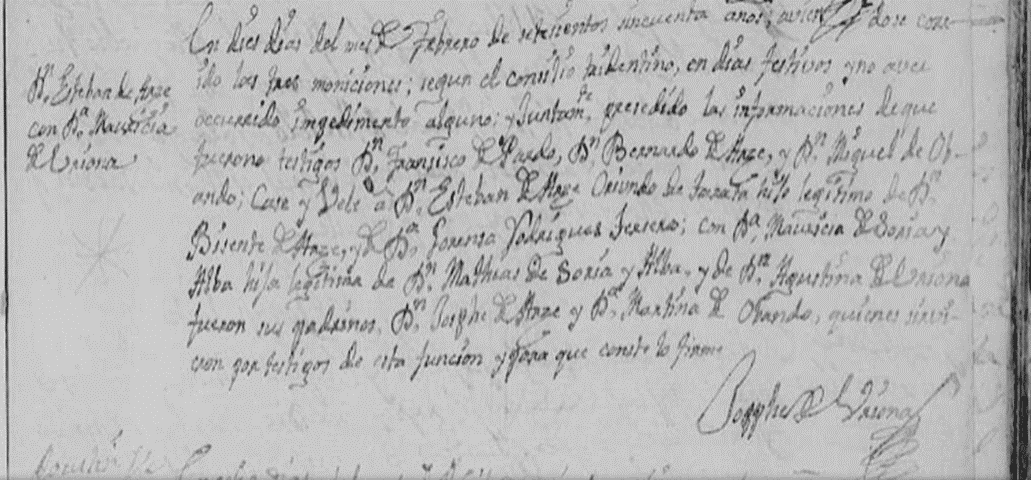 Dn. Esteban de Arze
con Da. Mauricia
de Uriona
En dies dias del mes de Febrero de setesientos sincuenta años; avien dose core
ido las tres moniciones; segun el consilio tridentino, en dias festivos y no aver
occurrido impedimento alguno; y Juntamte. presedido las informaciones de que
fueron testigos Dn. Fransisco de Pardo, Dn. Bernardo de Arze, y Dn. Miguel de Ob-
ando; Case y Vele a Dn. Esteban de Arze Oriundo de Tarata hijo legitimo de Dn.
Bisente de Arze, y de Da. Lorensa Rodrigues Tersero; con Da. Mauricia de Soria y
Alba hija legitima de Dn. Mathias de Soria y Alba, y de Da. Agustina de Uriona
fueron sus padrinos, Dn. Josphe de Arze y Da. Martina de Obando, quienes sirvi-
eron por testigos de esta funcion y para que conste lo firme
Josphe de Uriona